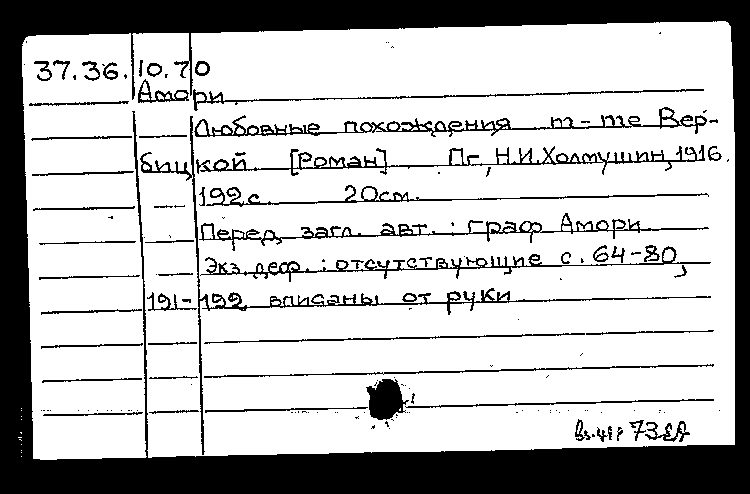 37.36.10.70
Амори.
Любовные похождения m-me Вер-
бицкой. [Роман] Пг., Н.И.Холмушин, 1916.
192 с. 20см.
Перед загл. авт. : граф Амори.
Экз. деф. : отсутствующие с. 64-80,
191-192 вписаны от руки
73